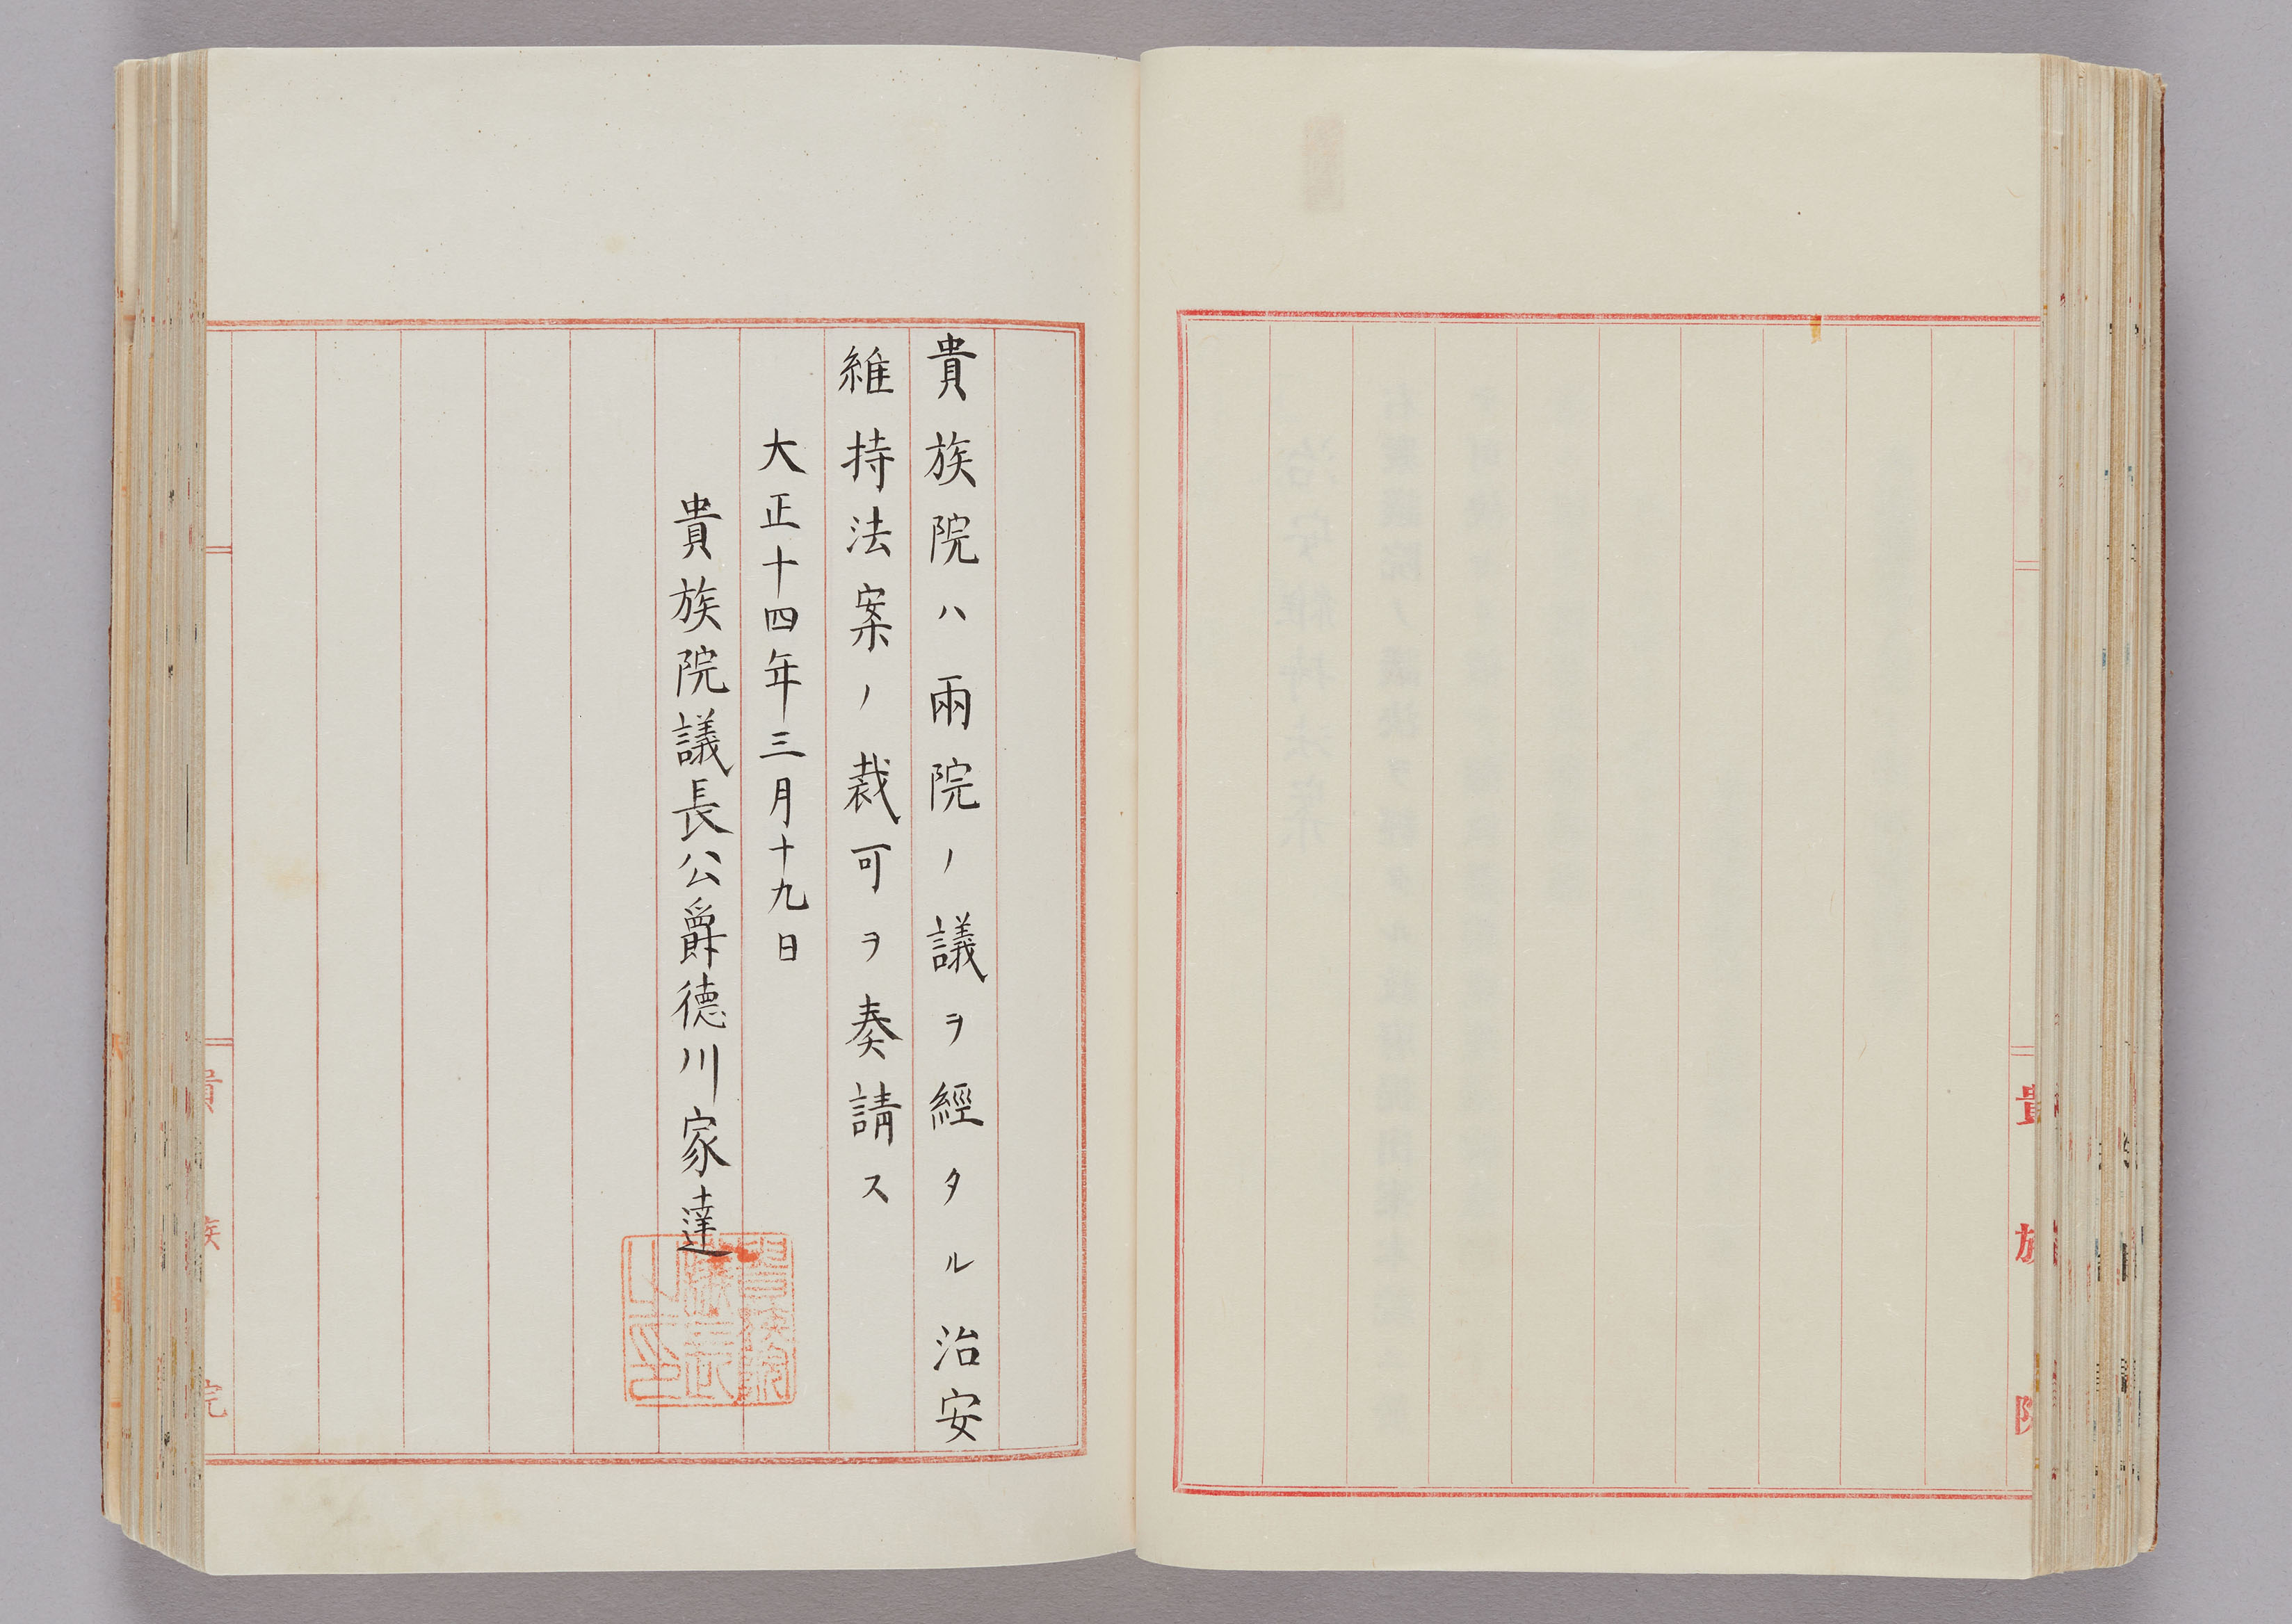 貴族院ハ兩院ノ議ヲ經タル治安
維持法案ノ裁可ヲ奏請ス
大正十四年三月十九日
貴族院議長公爵德川家達
貴族院